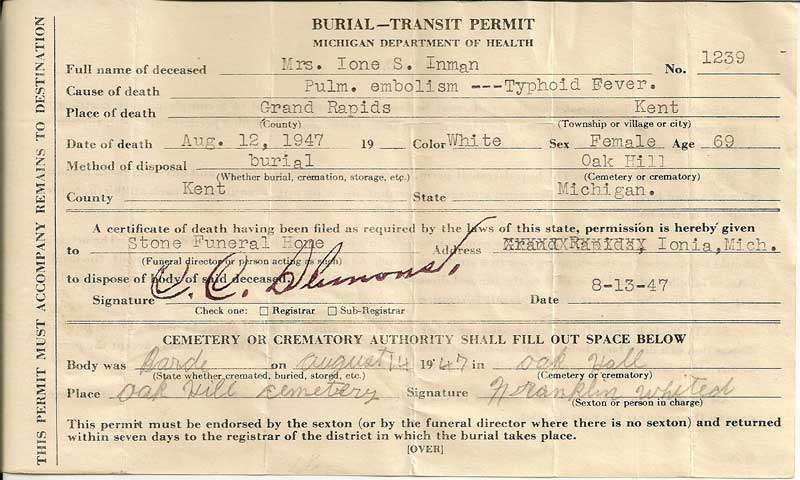 BURIAL—TRANSIT PERMIT
MICHIGAN DEPARTMENT OF HEALTH
Full name of deceased Mrs. Ione S. Inman No. 1239
Cause of death Pulm. embolism ---Typhoid Fever.
Place of death Grand Rapids Kent
(County) (Township or village or city)
Date of death Aug. 12, 1947 19 Color White Sex Female Age 69
Method of disposal burial Oak Hill
(Whether burial, cremation, storage, etc.) (Cemetery or crematory)
County Kent State Michigan.
A certificate of death having been filed as required by the laws of this state, permission is hereby given
to Stone Funeral Home Address Grand Rapids, Ionia, Mich.
(Funeral director or person acting as such)
to dispose of body of said deceased.
Signature Date 8-13-47
Check one: Registrar Sub-Registrar
CEMETERY OR CREMATORY AUTHORITY SHALL FILL OUT SPACE BELOW
Body was on august 14 1947 in oak
(State whether cremated, buried, stored, etc.) (Cemetery or crematory)
Place oak Hill cemetery Signature Franklin Whited
(Sexton or person in charge)
This permit must be endorsed by the sexton (or by the funeral director where there is no sexton) and returned
within seven days to the registrar of the district in which the burial takes place.
[OVER]
THIS PERMIT MUST ACCOMPANY REMAINS TO DESTINATION